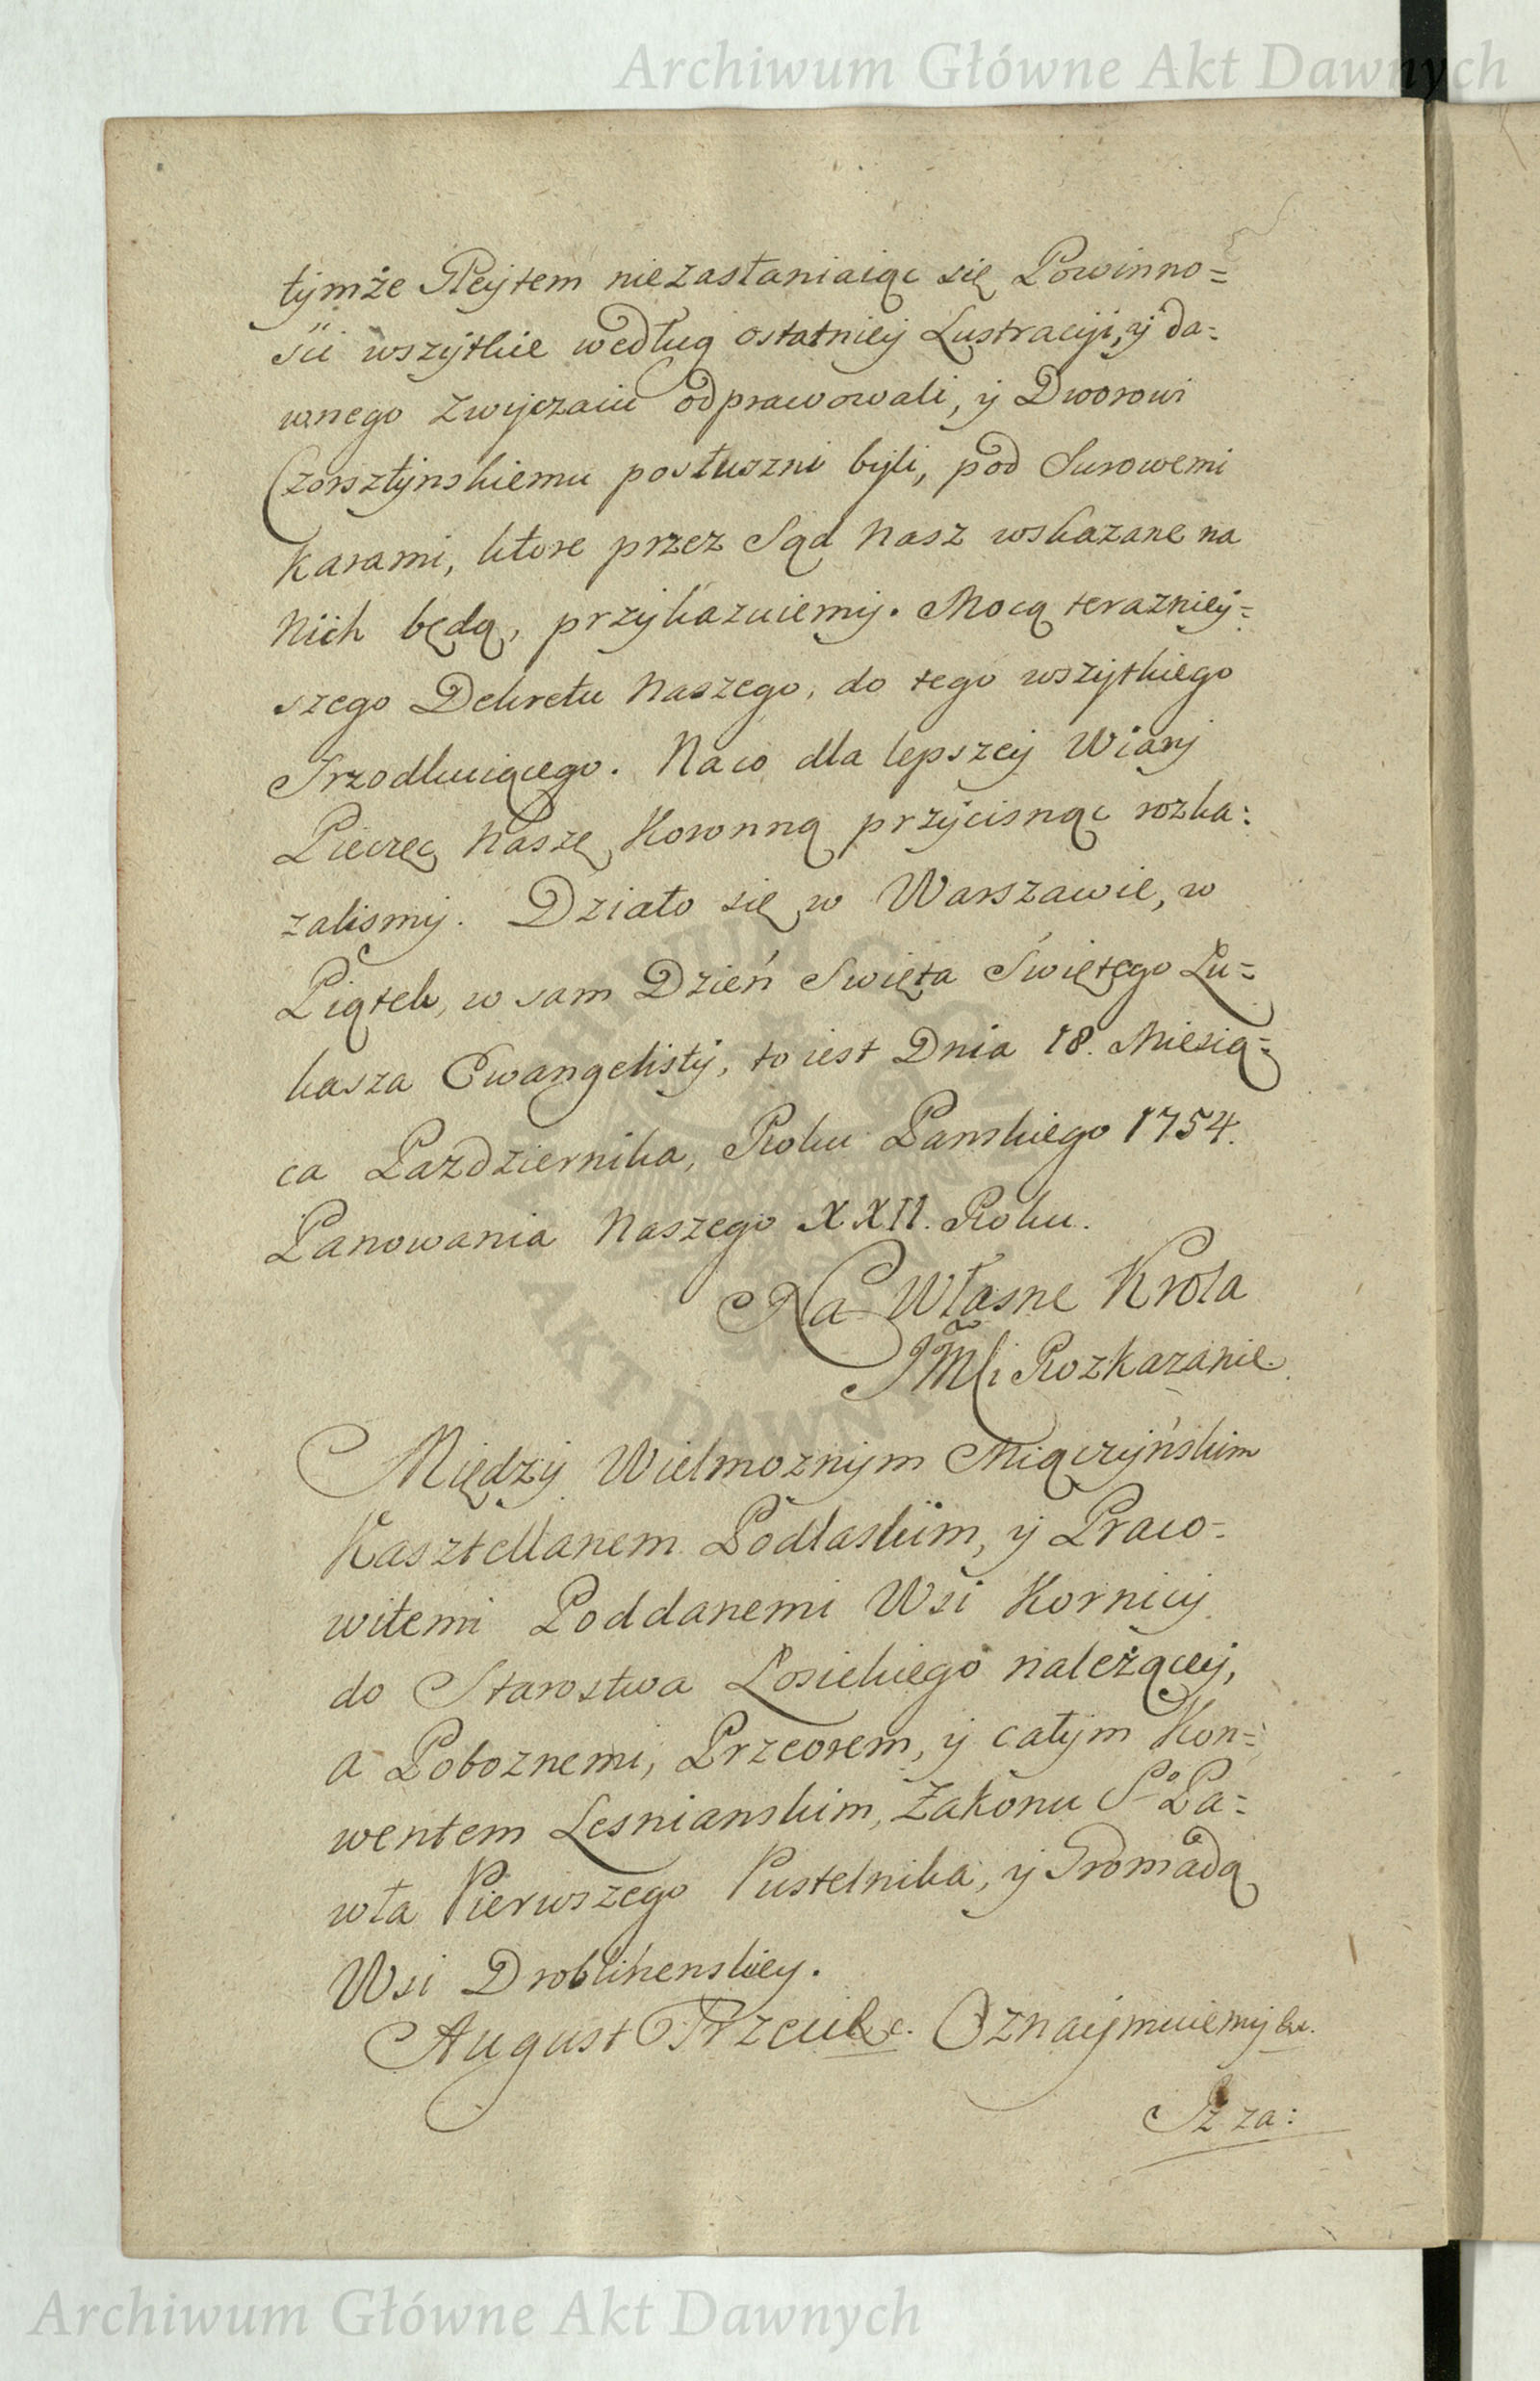 Archiwum Główne Akt Dawnych
tymże Glejtem niezasłaniaiąc się Powinno=
sci wszytkie według ostatniey Lustracyi, y da=
wnego zwyczaiu odprawowali, y Dworowi
Czorsztynskiemu posłuszni byli, pod Surowemi
karami, ktore przez Sąd Nasz wskazane na
Nich będą, przykazuiemy. Mocą terazniey=
szego Dekretu Naszego, do tego wszytkiego
Srzodkuiącego. Naco dla lepszey Wiary
Pieczęc Naszę Koronną przycisnąc rozka:
zalismy. Działo się w Warszawie, w
Piątek, w sam Dzień Swięta Świętego Łu=
kasza Ewangelisty, to iest Dnia 18. Miesią=
ca Pazdziernika, Roku Panskiego 1754.
Panowania Naszego XXII. Roku.
Na Własne Krola
JMci Rozkazanie.
Między Wielmoznym Miączyńskim
Kasztellanem Podlaskim, y Praco=
witemi Poddanemi Wsi Kornicy
do Starostwa Łosickiego należącey,
a Poboznemi, Przeorem, y całym Kon=
wentem Lesnianskim, Zakonu Sgo Pa=
wła Pierwszego Pustelnika, y Gromadą
Wsi Droblinenskiey.
August Trzeci &c. Oznaymuiemy &c.
Iz za:
ARCHIWUM GŁÓWNE AKT DAWNYCH
Archiwum Główne Akt Dawnych